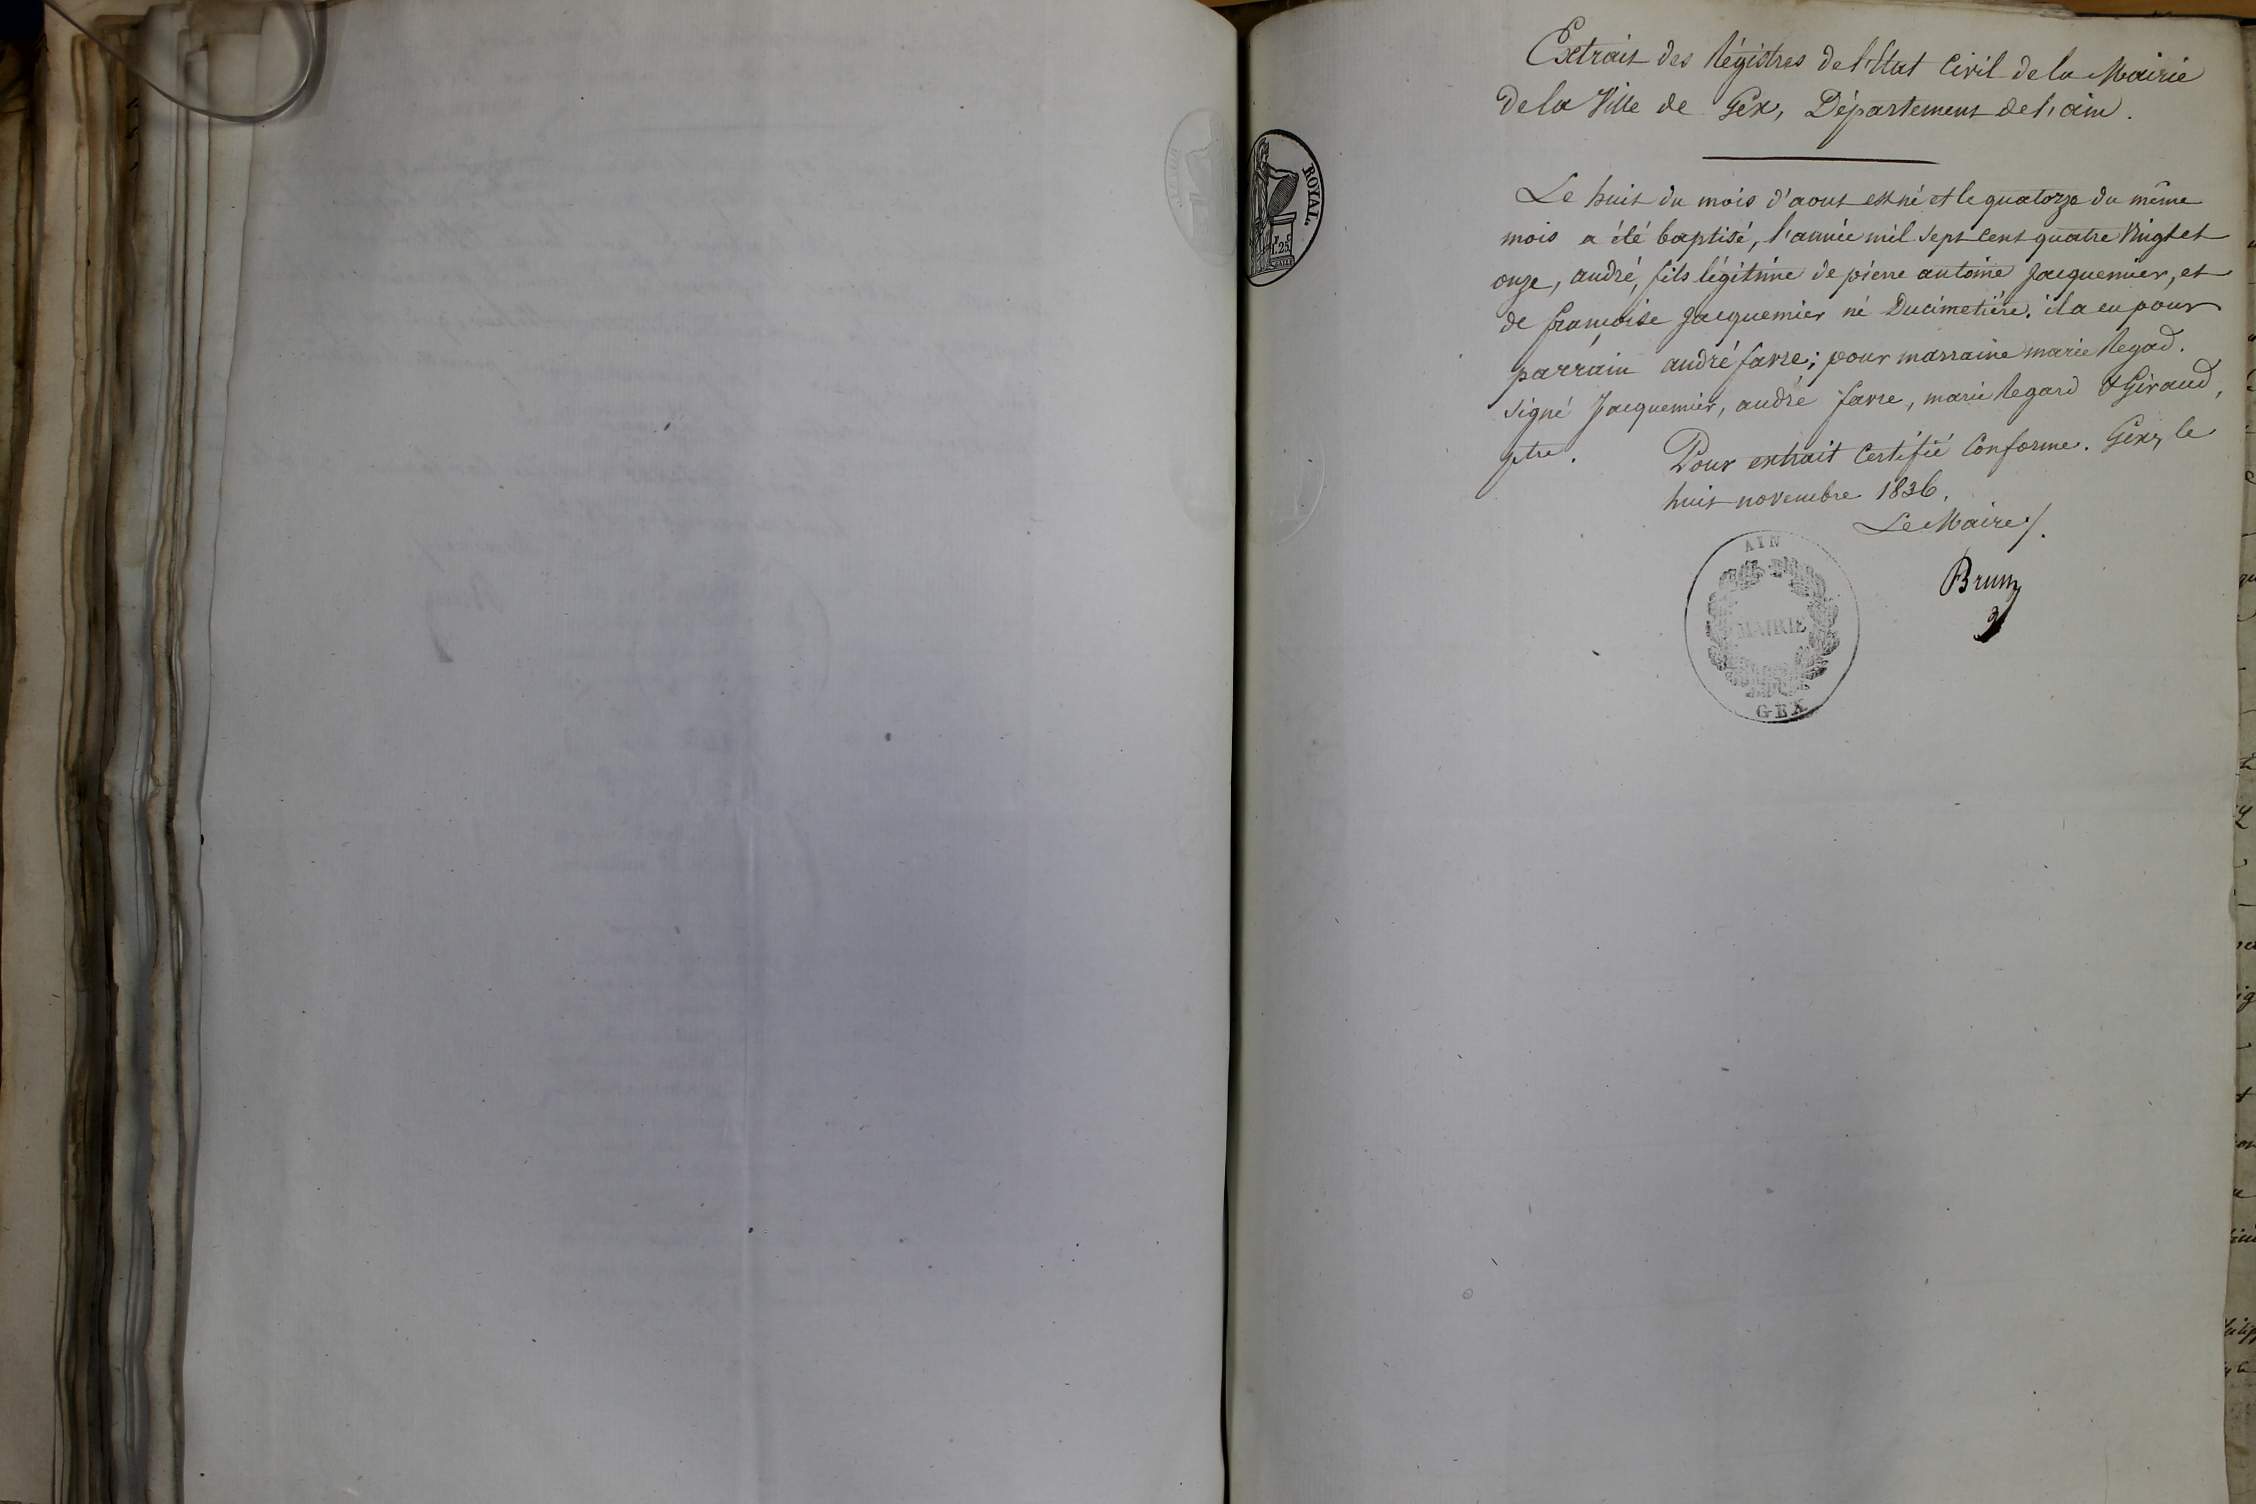 Extrait des Régistres de l'Etat Civil de la Mairie
de la Ville de Gex, Département de l'ain.
Le huit du mois d'aout est né et le quatorze du même
mois a été baptisé, l'année mil sept cent quatre Vingt et
onze, andré, fils légitime de pierre antoine Jacquemier, et
de francoise Jacquemier né Ducimetière. il a eu pour
parrain andré favre; pour marraine marie Regad.
signé Jacquemier, andré favre, marie Regard & Giraud,
ptre. Pour extrait Certifié Conforme. Gex, le
huit novembre 1836.
Le Maire
Brun
ROYAL
AIN
MAIRIE
GEX